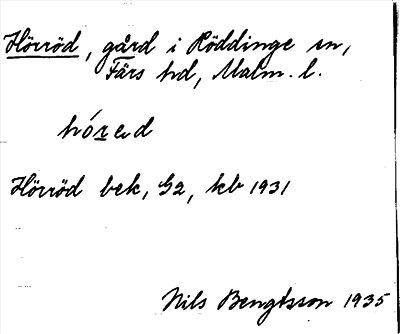 Hörröd, gård i Röddinge sn,
Färs hd, Malm. l.
hó̱red
Hörröd bek, G2, kb 1931
Nils Bengtsson 1935